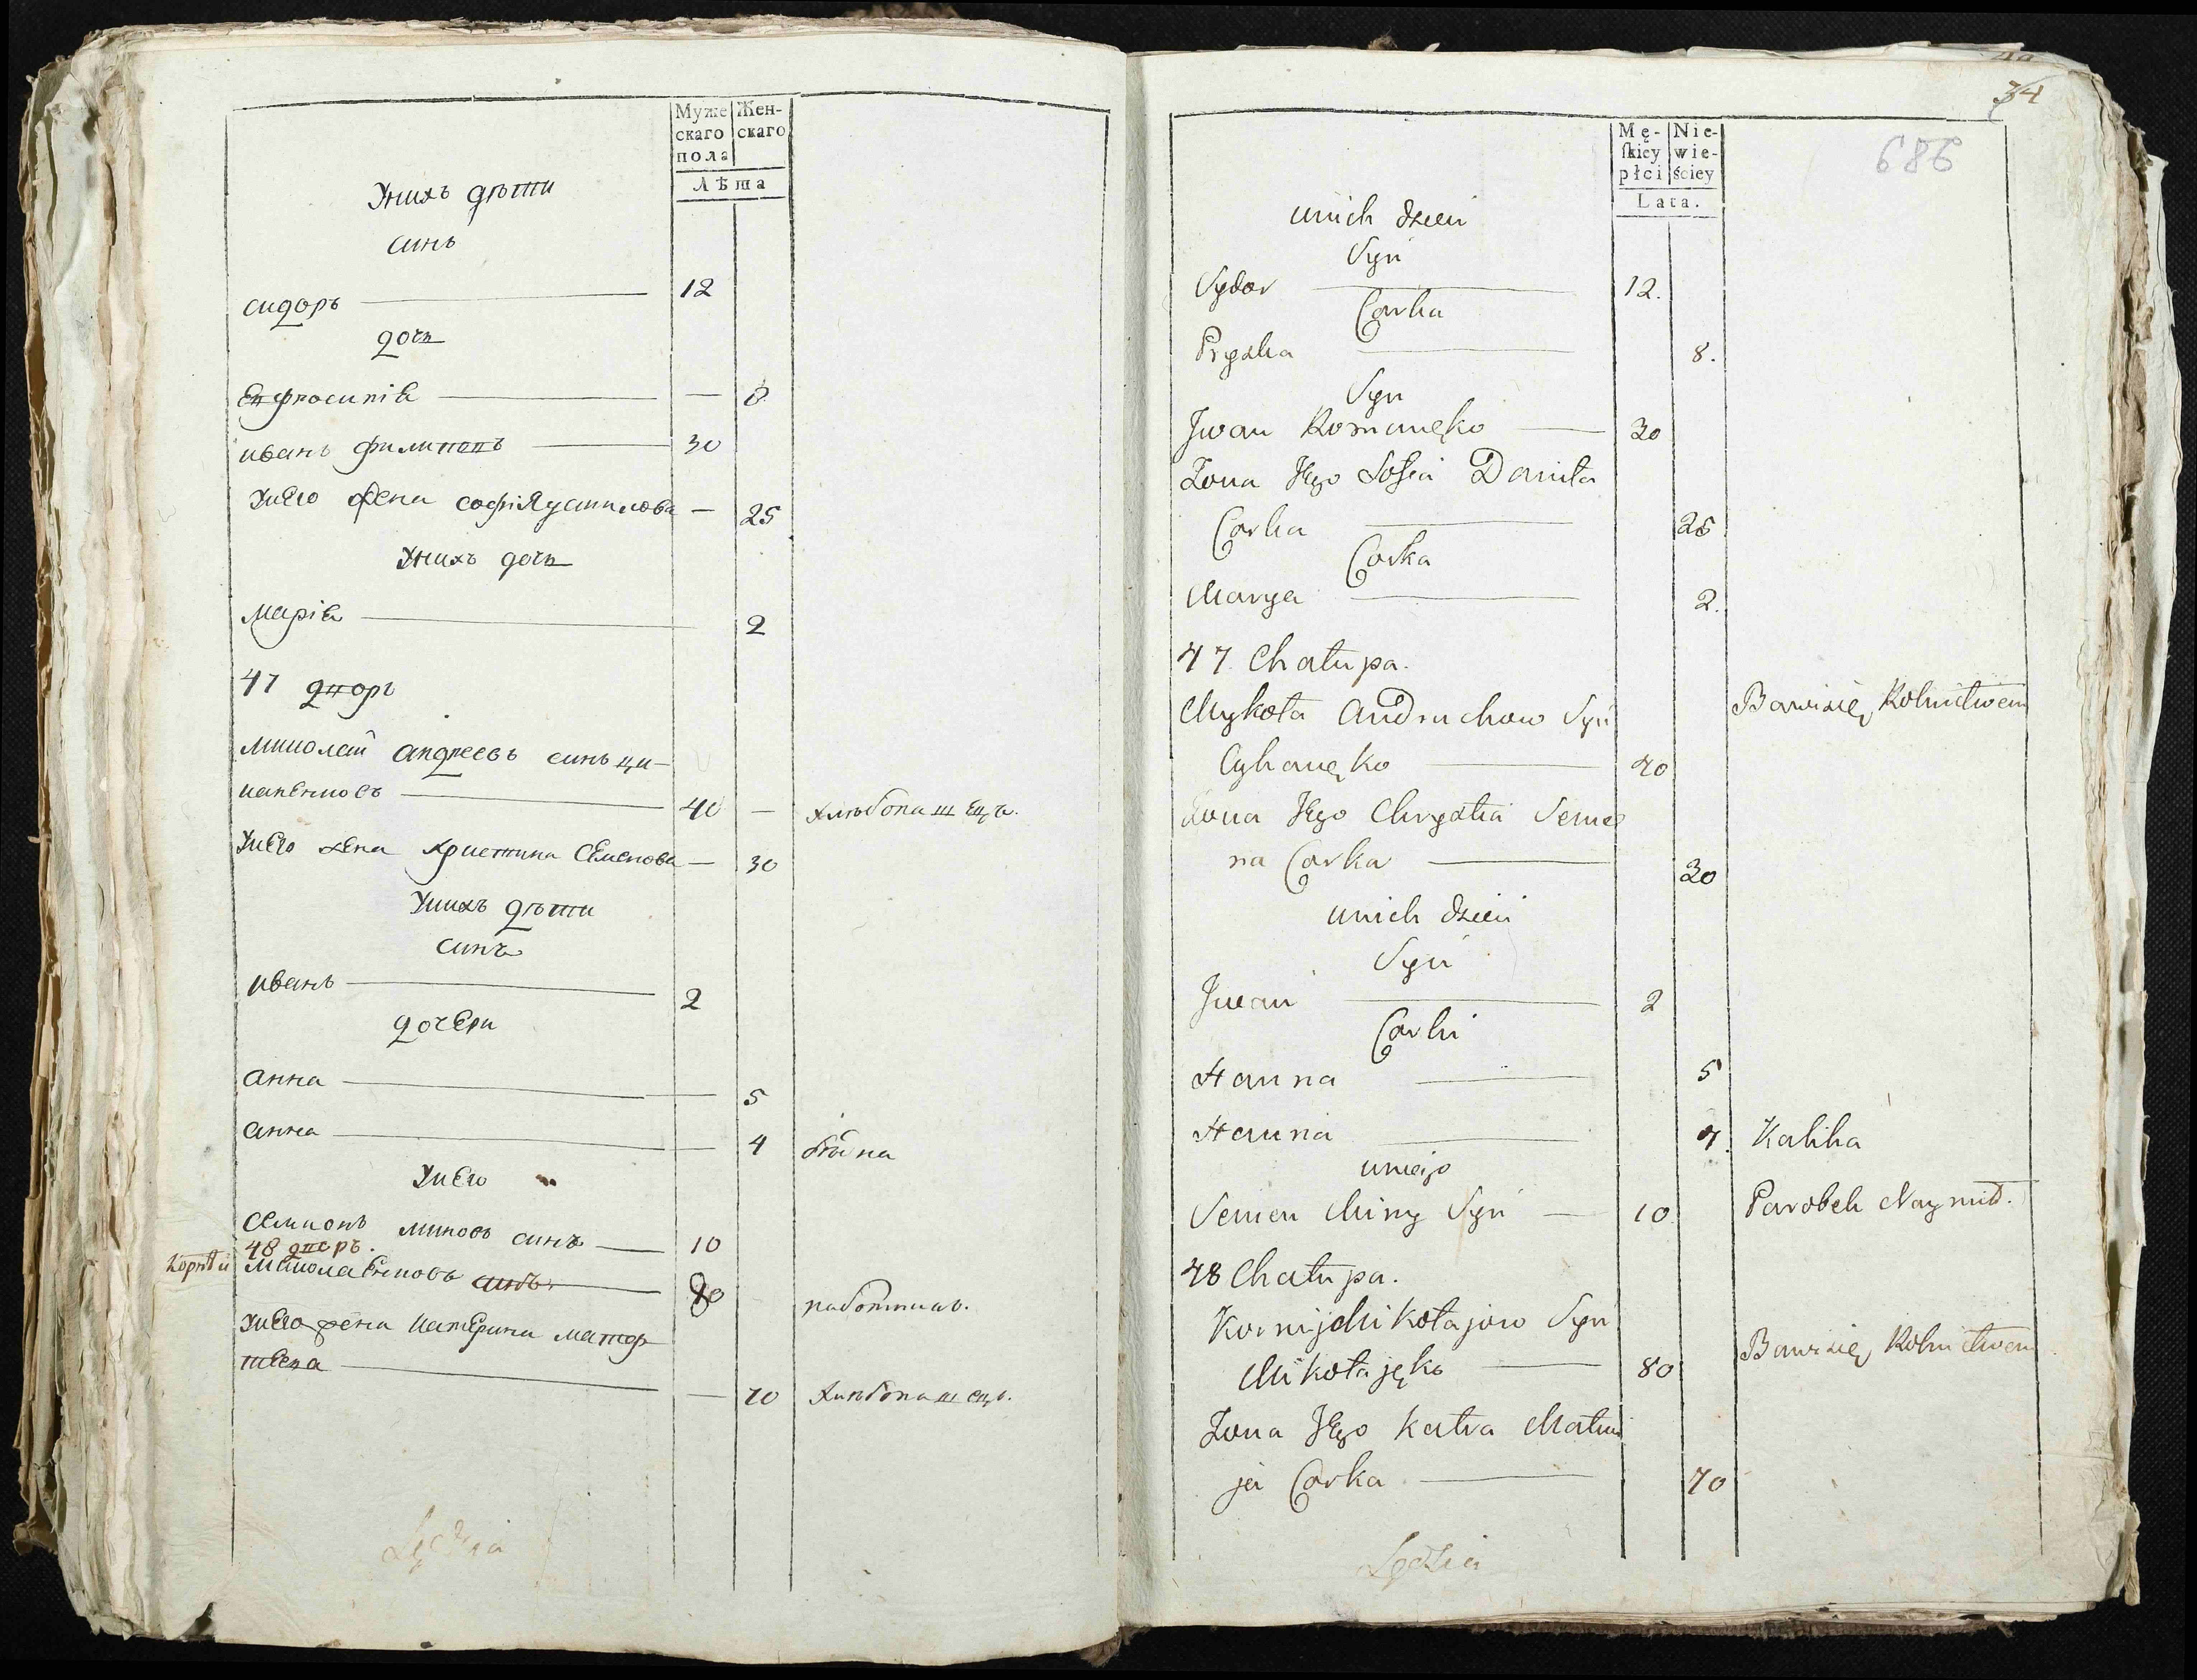 Муже Жен-
скаго скаго
пола
Лѣта
Унихъ дѣти
синъ
сидоръ 12
дочь
Евфросинія — 8
иванъ филиповъ 30
Унего жена софія данилова — 25
Унихъ дочь
Марія 2
47 дворъ
Миколай андреевъ синъ ци-
каненковъ 40 — хлѣбопашецъ.
Унего жена христина Семенова — 30
Унихъ дѣти
синъ
иванъ 2
дочери
анна 5
анна 4
Унего
Семионъ миновъ синъ 10
48 дворъ.
Корнѣй Миколаенковъ синъ 80 работникъ.
Унего жена катерина матф
ѣева — 70 хлѣбопашецъ.
Sędzia
34
686
Mę- Nie-
ſkiey wie-
płci ściey
Lata.
unich dzieci
Syn
Sydor 12.
Corka
Pryzka 8.
Syn
Jwan Romanęko 30
Zona Jego Sofia Daniła
Corka 25
Corka
Marya 2.
47 Chałupa.
Mykoła Andruchow Syn Bawi się Rolnictwem
Cyhanęko 40
Zona Jego Chrystia Seme
na Corka 30
unich dzieci
Syn
Jwan 2
Corki
Hanna 5
Hanna 4. Kalika
uniego
Semen Miny Syn 10 Parobek Naymit.
48 Chałupa.
Kornij Mikołajow Syn
Mikołajęko 80 Bawi się Rolnictwem
Zona Jego Katra Matwi
ja Corka 70
Sędzia